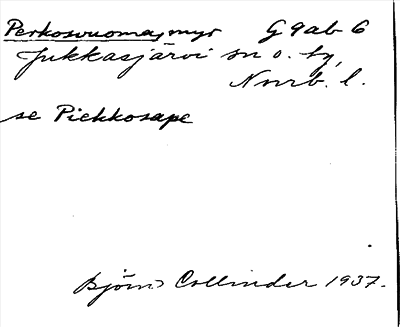 Perkosvuoma, myr G 9ab 6
Jukkasjärvi sn o. by,
Nmrb. l.
se Piekkosape
Björn Collinder 1937.